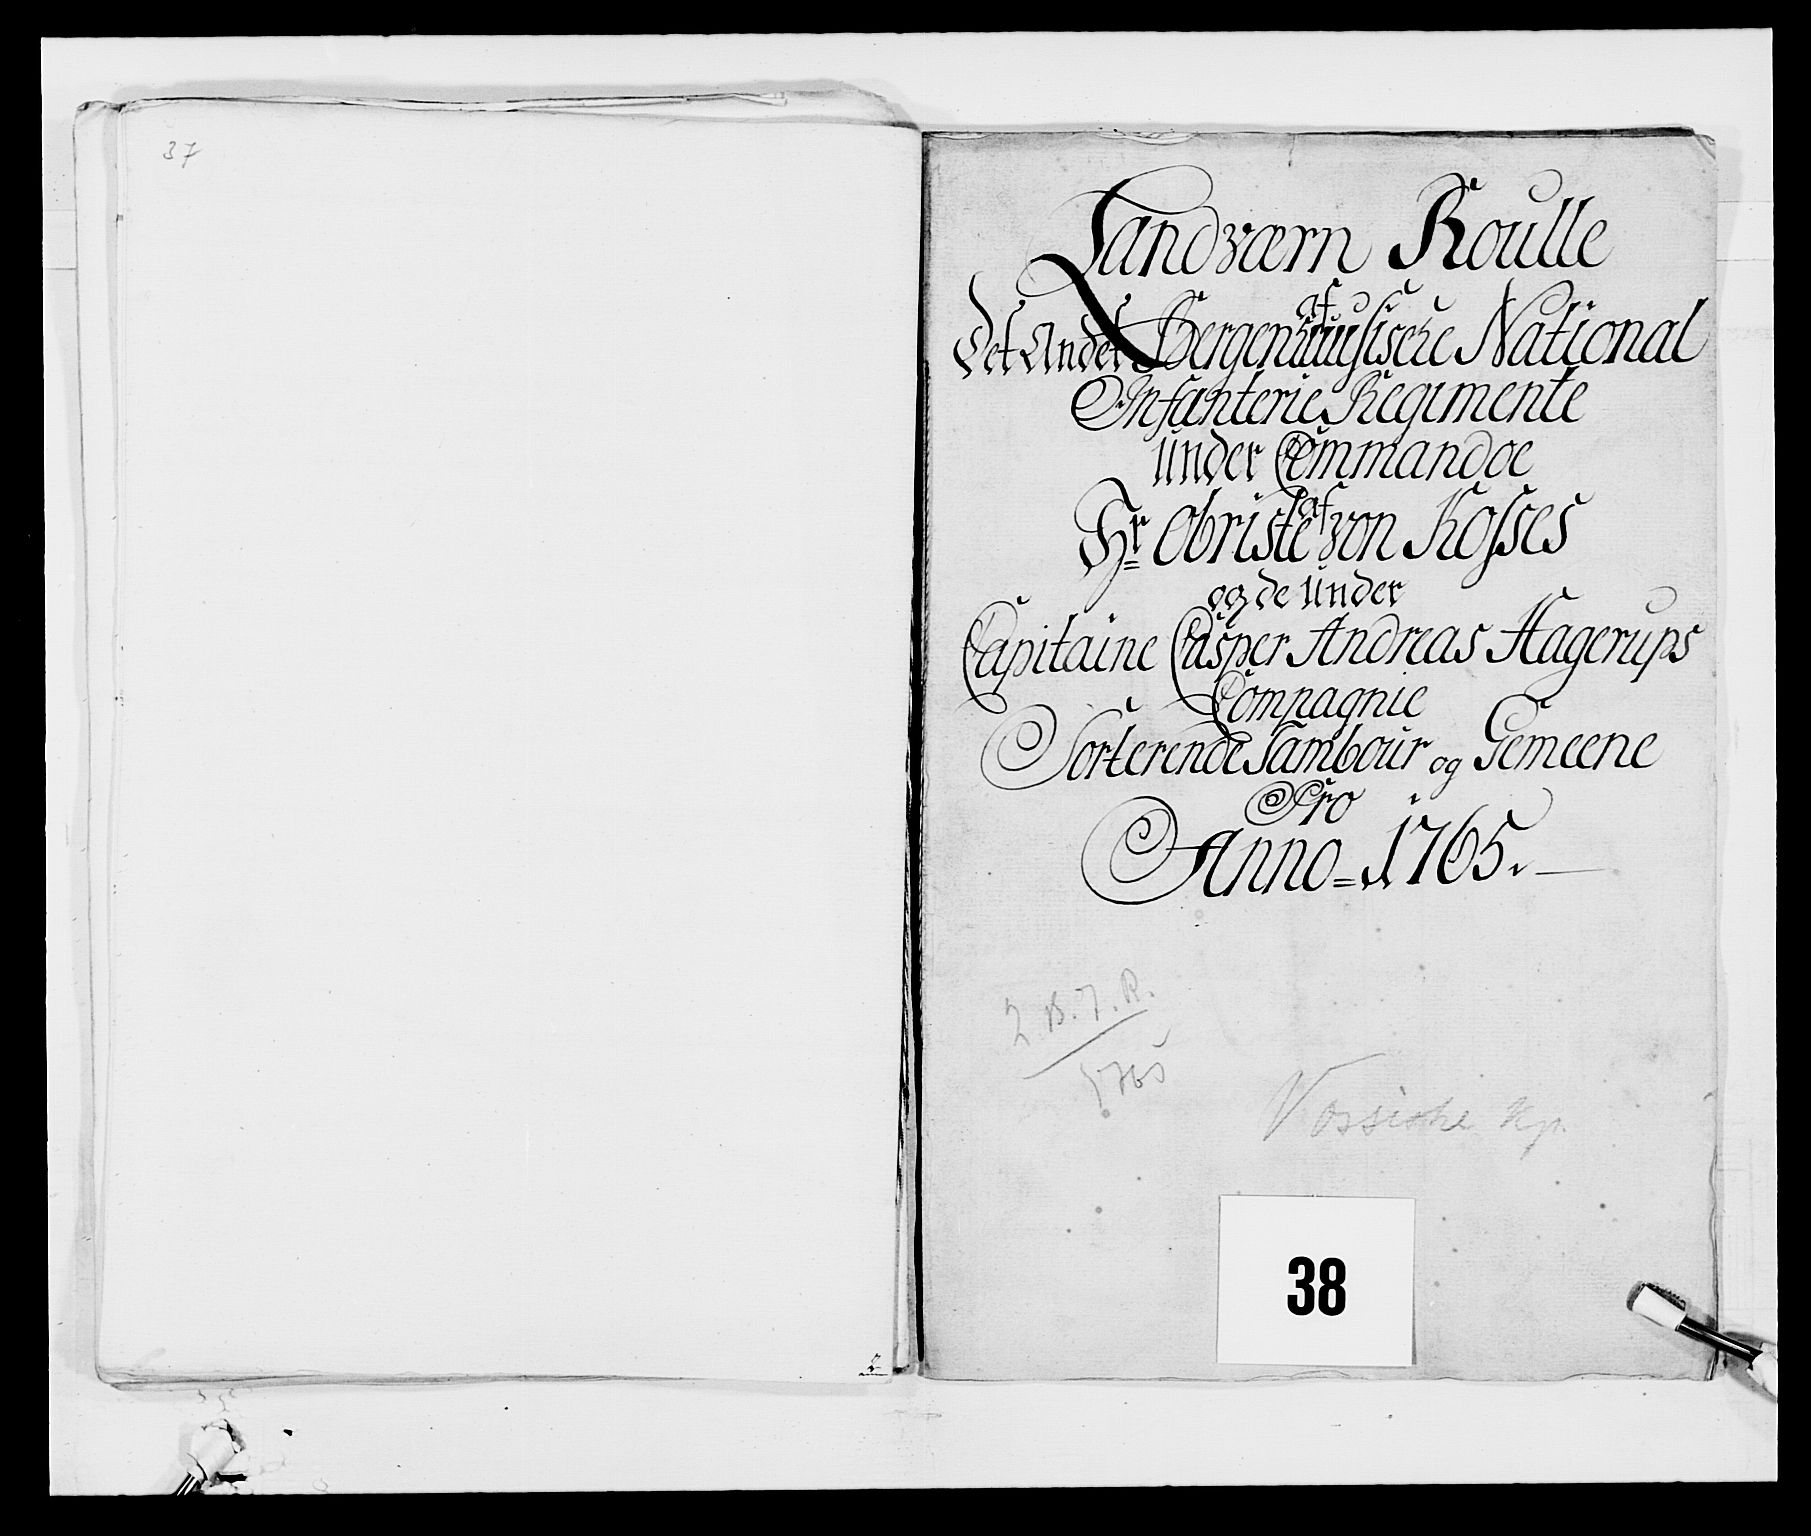 37
2
Landværn Roulle
af
Det Andet Bergenhuusische National
Infanterie Regimente
under Commandoe
af
Hr Obriste von Kosses
og de under
Capitaine Casper Andreas Hagerups
Compagnie
Sorterende Tambour og Gemeene
Pro
Anno = 1765.
2 B. I. R.
1765
Vossiske Kp.
38